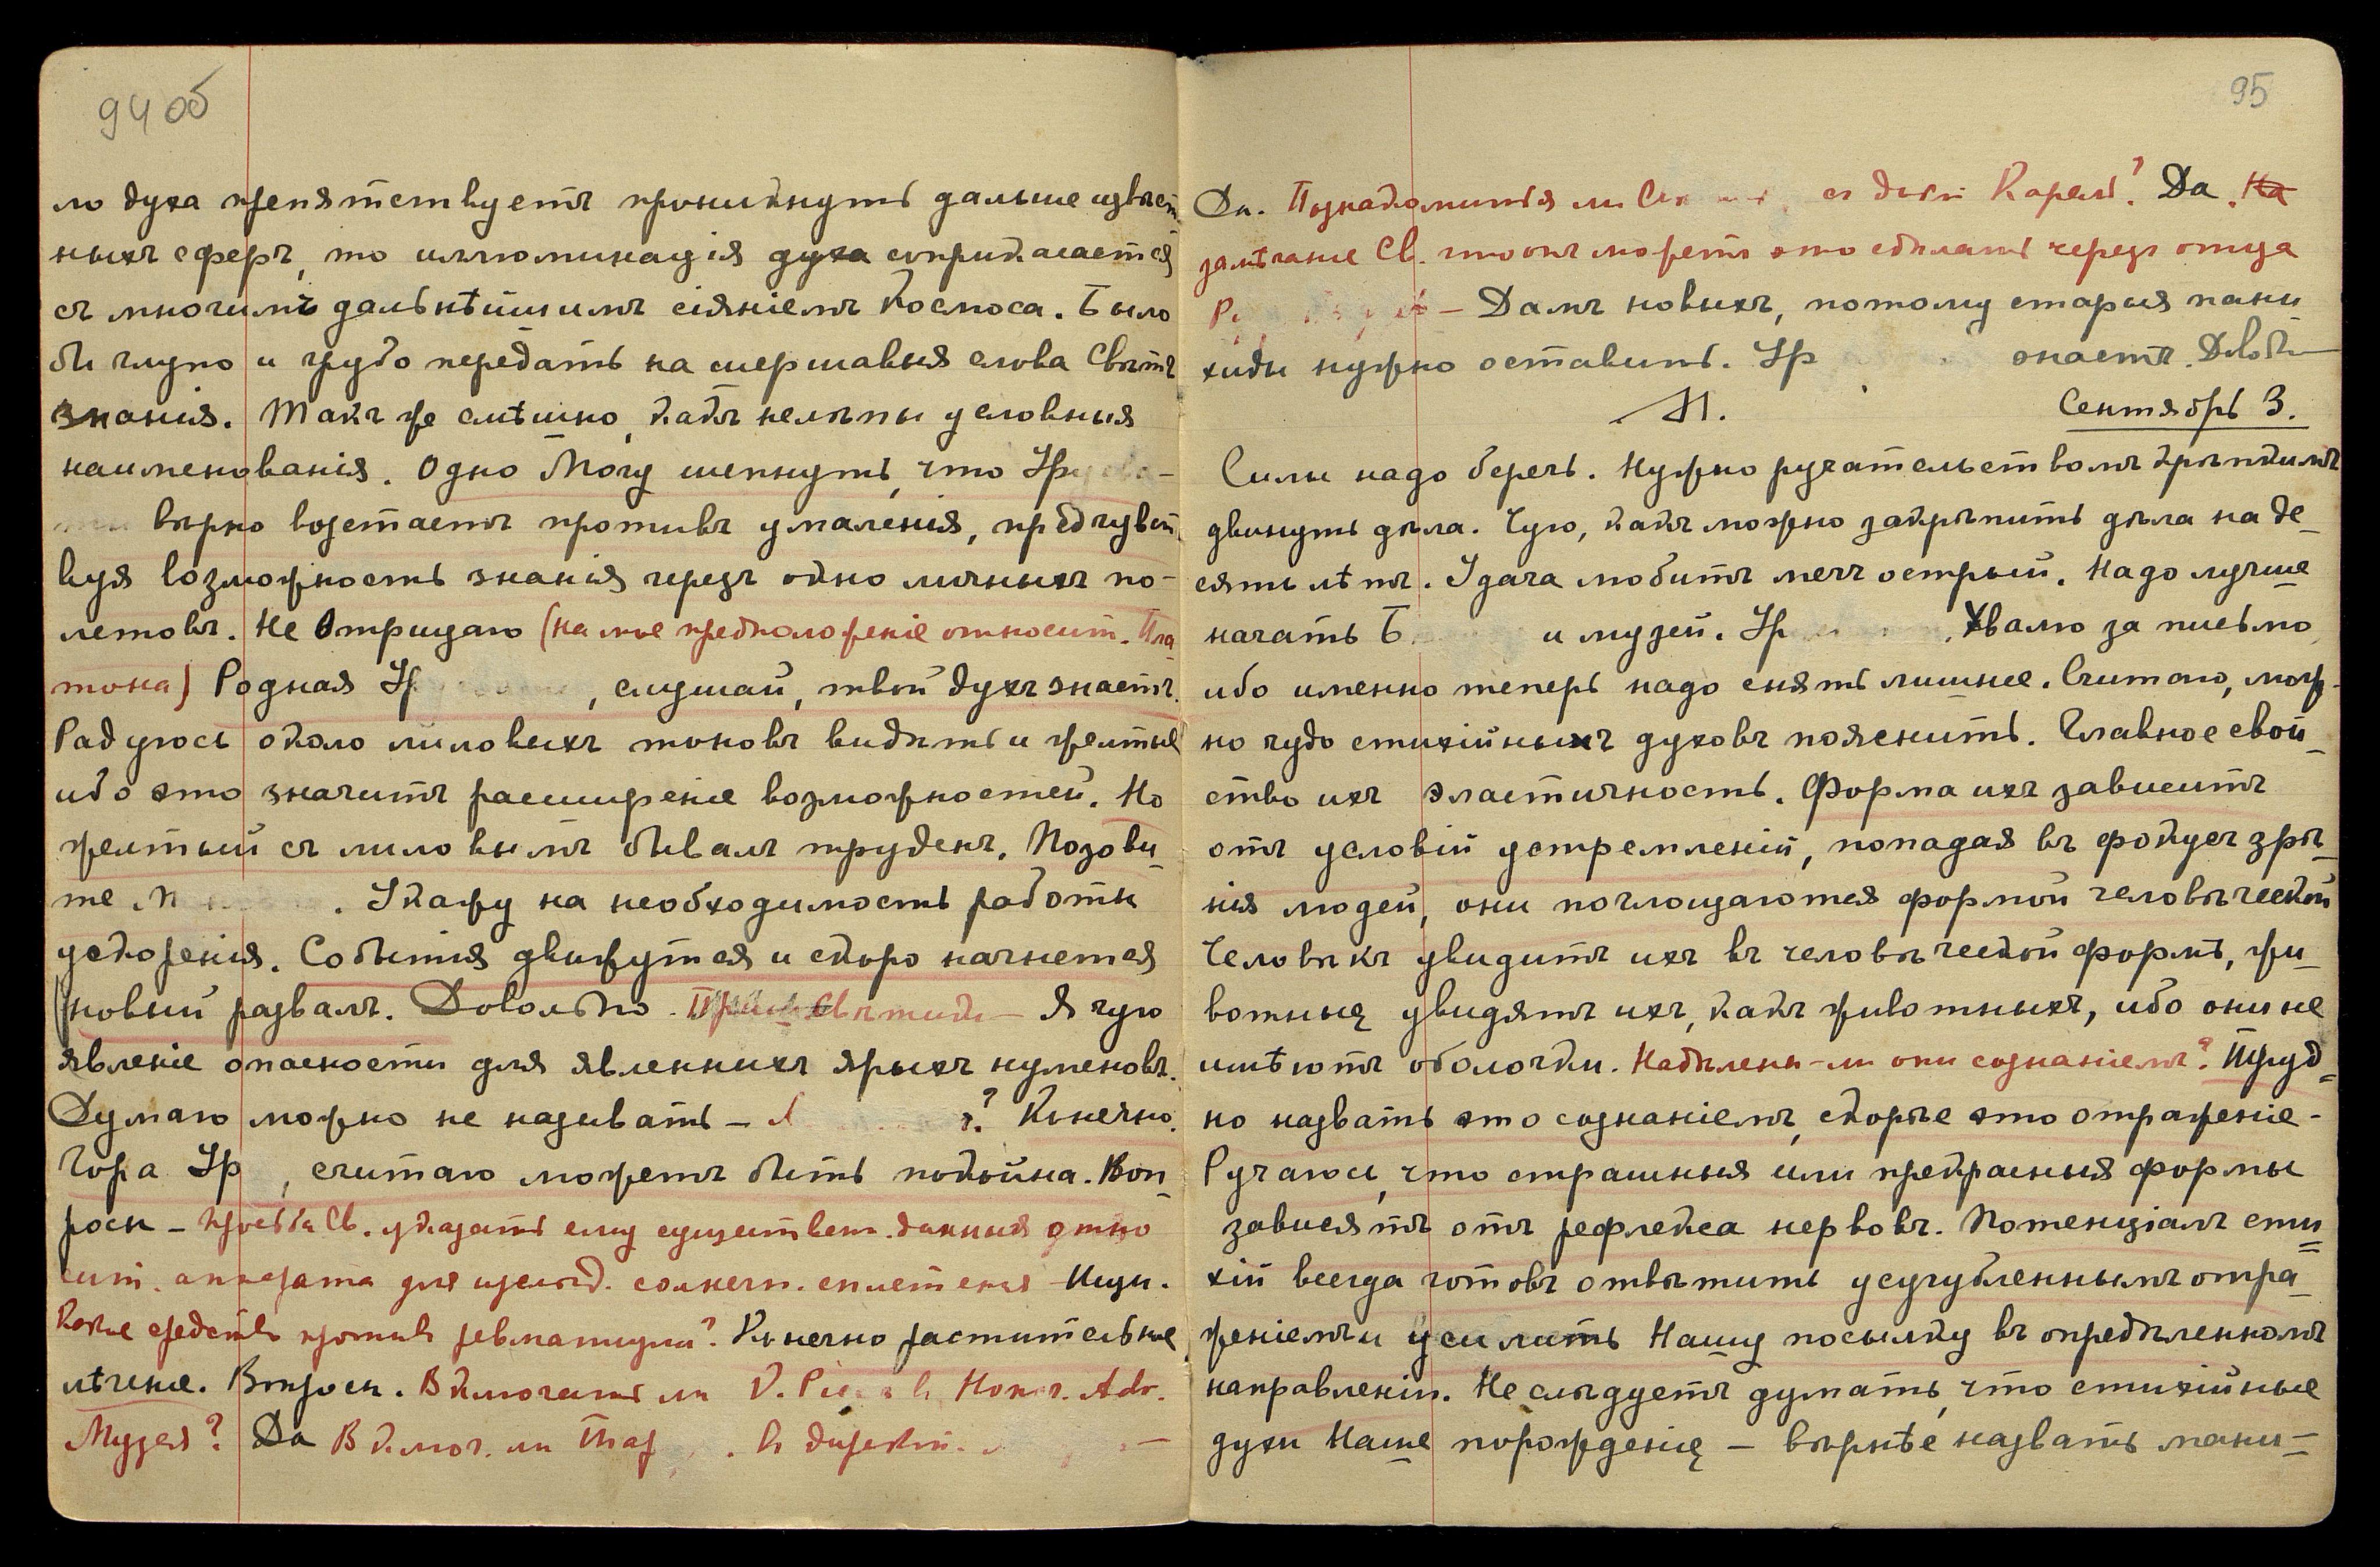 94 об
ло духа препятствуетъ проникнуть дальше извѣст
ныхъ сферъ, то иллюминація духа соприкасается
съ многимъ дальнѣйшимъ сіяніемъ Космоса. Было
бы глупо и грубо передать на шершавыя слова Свѣтъ
Знанія. Такъ же смѣшно, какъ нелѣпы условныя
наименованія. Одно Могу шепнуть, что Ур
вѣрно возстаетъ противъ умаленія, предчувст
вуя возможность знанія черезъ одноличныхъ по-
летовъ. Не Отрицаю (на мое предположеніе относит. Пла
тона) Родная Ур , слушай, твой духъ знаетъ.
Радуюсь около лиловыхъ тоновъ видѣть и желтые
ибо это значитъ расширеніе возможностей. Но
желтый съ лиловымъ бывалъ труденъ. Позови_
те М . Укажу на необходимость работы
ускоренія. Событія движутся и скоро начнется
новый развалъ. Довольно. Я чую
явленіе опасности для явленныхъ ярыхъ нуменовъ.
Думаю можно не называть – ? Конечно.
Гора Ур , считаю можетъ быть покойна. Воп_
росы – Просьба Св. указать ему существен. данныя отно
сит. аппарата для изслѣд. солнечн. сплетенія – Ищи.
Какое средство противъ ревматизма? Конечно растительное
лѣченіе. Вопросы. Включать ли V. Honor. Adv.
Музея? Да Включ. ли въ дирекціи
95
Да. Познакомиться ли съ Карель? Да. На
замѣчаніе Св. что онъ можетъ это сдѣлать черезъ отца
– Дамъ новыхъ, потому старыя пани
хиды нужно оставить. Ур знаетъ. Довольно
М. Сентябрь 3.
Силы надо беречь. Нужно ручательствомъ крѣпкимъ
двинуть дѣла. Чую, какъ можно закрѣпить дѣла на де_
сять лѣтъ. Удача любитъ мечъ острый. Надо лучше
начать Б и музей. Ур . Хвалю за письмо,
ибо именно теперь надо снять лишнее. Считаю, мож_
но чудо стихійныхъ духовъ пояснить. Главное свой_
ство ихъ эластичность. Форма ихъ зависитъ
отъ условій устремленій, попадая въ фокусъ зрѣ_
нія людей, они поглощаются формой человѣческой
Человѣкъ увидитъ ихъ въ человѣческой формѣ, жи_
вотные увидятъ ихъ, какъ животныхъ, ибо они не
имѣютъ оболочки. Надѣлены-ли они сознаніемъ? Труд_
но назвать это сознаніемъ, скорѣе это отраженіе-
Ручаюсь, что страшныя или прекрасныя формы
зависятъ отъ рефлекса нервовъ. Потенціалъ сти_
хій всегда готовъ отвѣтить усугубленнымъ отра_
женіемъ и усилить Нашу посылку въ опредѣленномъ
направленіи. Не слѣдуетъ думать, что стихійные
духи Наше порожденіе – вѣрнѣе назвать мани_